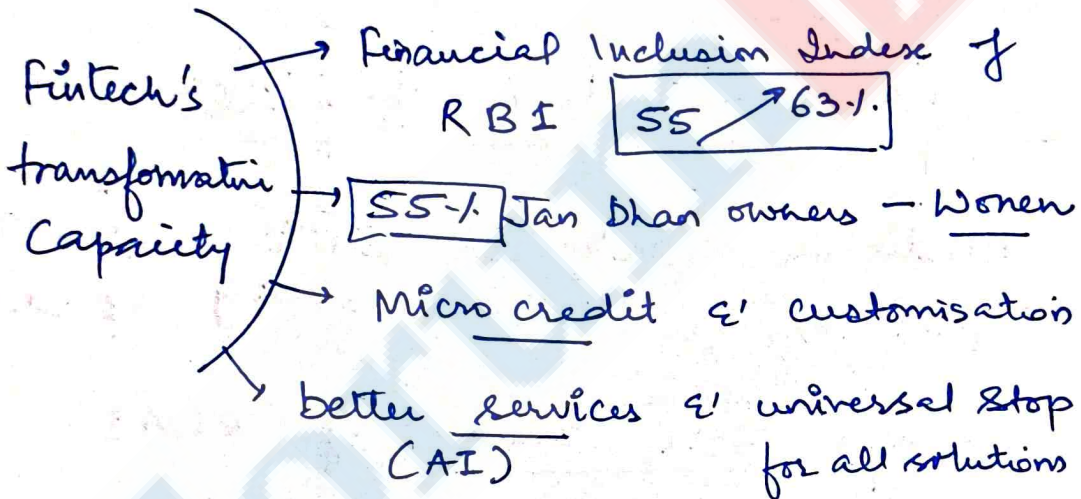 Fintech's
transformative
Capacity
Financial Inclusion Index of
RBI 55 63%.
55% Jan Dhan owners - Women
Micro credit & customisation
better services & universal stop
(AI) for all solutions